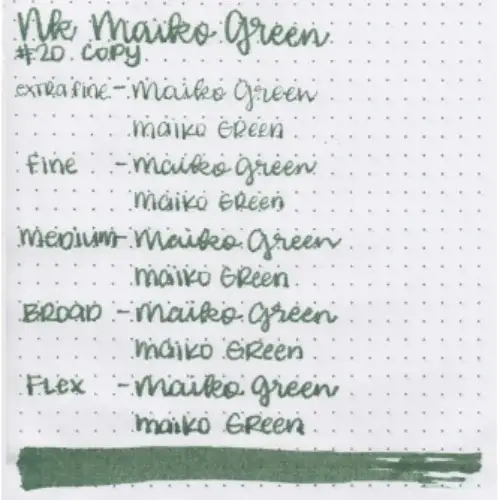 Nk Maiko Green
#20 COPY
extra fine - Maiko Green
maiko GReen
fine - Maiko Green
maiko GReen
medium - Maiko Green
maiko GReen
BROAD - Maiko Green
maiko GReen
FLex - Maiko Green
maiko GReen